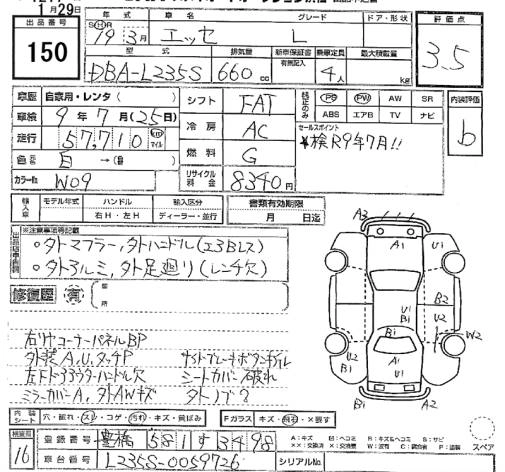 1月29日
出品番号
150
年式 車名 グレード ドア・形状
19年3月 エッセ L
型式 排気量 新車保証書 乗車定員 最大積載量
DBA-L235S 660cc 有無記入 4人 kg
評価点
3.5
車歴 自家用・レンタ( )
車検 9年7月(25日)
走行 57,710 km マイル
色 白→(白 )
カラーNo. W09
シフト FAT
冷房 AC
燃料 G
リサイクル料金 8340円
純正のみ PS PW AW SR
ABS エアB TV ナビ
セールスポイント
*検R9年7月!!
内装評価
b
輸入車 モデル年式 ハンドル 輸入区分
右H・左H ディーラー・並行
書類有効期限
月 日迄
※注意事項記載
○外マフラー,外ハンドル(エ3Bレス)
○外アルミ,外足廻り(レンチ欠)
修復歴 有
箇所
右リヤコーナーパネルBP
外装A,U,タッチP
ミラーカバーA,外AWキズ
サイドブレーキボタン
シートカバー破れ
A3
A1
U1
B2
U2
W2
B1
A2
内装シート 穴・破れ・スレ・コゲ・汚れ・キズ・黄ばみ
Fガラス キズ・飛石・×要す
A:キズ B:ヘコミ S:サビ
スペア
検査員
16
登録番号 豊橋 581 す 3498
車台番号 L235S-0059726
シリアルNo.